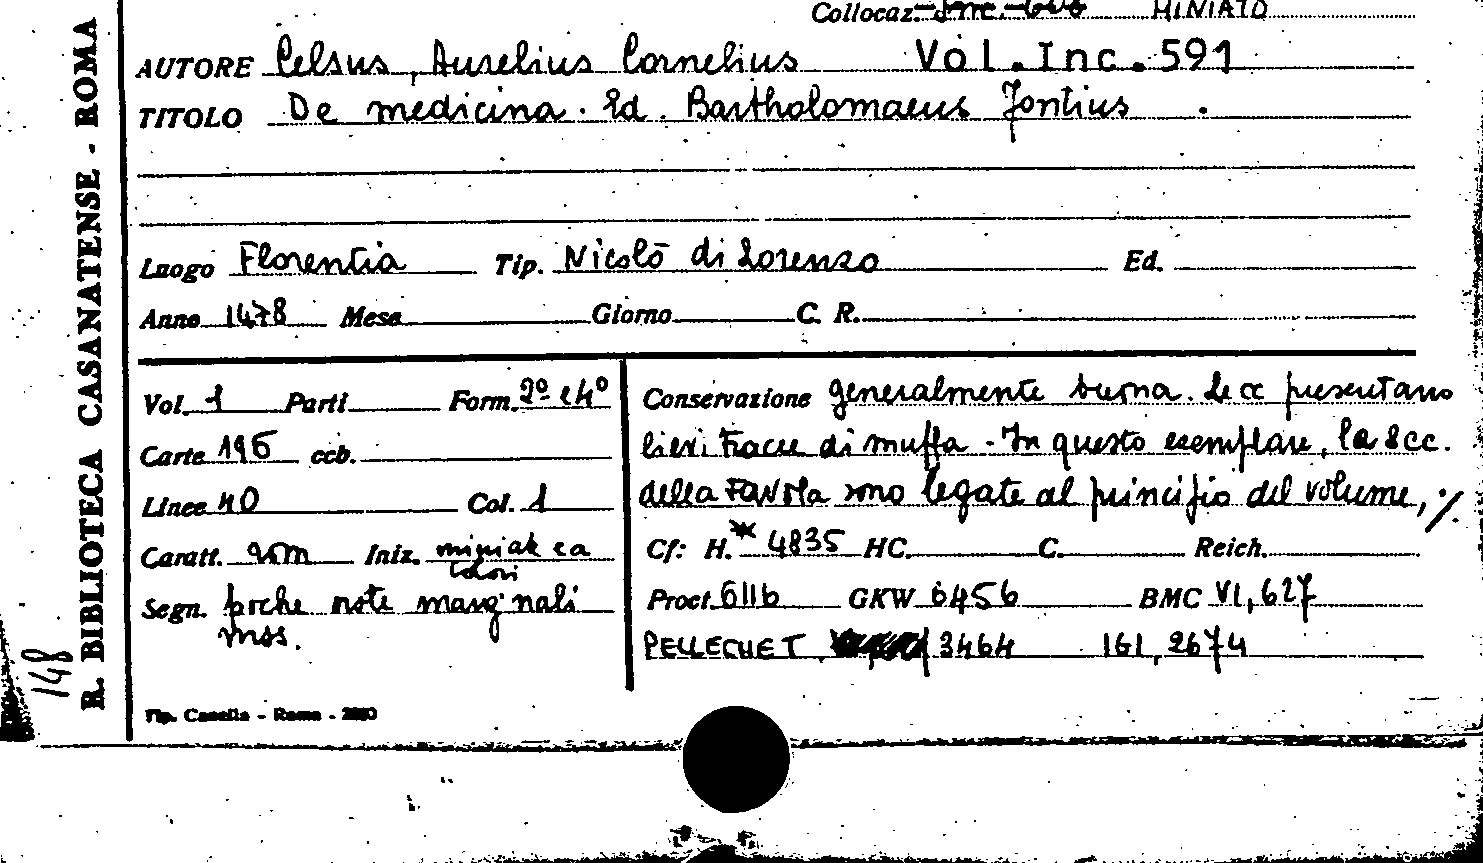 Collocaz. Inc. 608 MINIATO
AUTORE Celsus, Aurelius Cornelius Vol. Inc. 591
TITOLO De medicina. Ed. Bartholomaeus Fontius.
Luogo Florentia Tip. Nicolò di Lorenzo Ed.
Anno 1478 Mese Giorno C. R.
Vol. 1 Parti Form. 2º e 4º
Carte 196 ccb.
Linee 40 Col. 1
Caratt. rom Iniz. miniate e a
colori
Segn. poche note marginali
mss.
Conservazione generalmente buona. Le cc presentano
lievi tracce di muffa - In questo esemplare, le 8 cc.
della Tavola sono legate al principio del volume, ./.
Cf: H. * 4835 HC. C. Reich.
Proct. 6116 GKW 6456 BMC VI, 627
PELLECHET 3464 IGI, 2674
Tip. Casella - Roma -
R. BIBLIOTECA CASANATENSE - ROMA
148